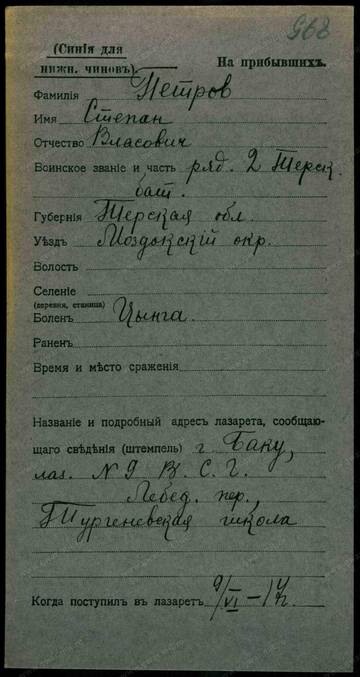 968
(Синія для
нижн. чиновъ).
На прибывшихъ.
Фамилія Петров
Имя Степан
Отчество Власович
Воинское званіе и часть ряд. 2 Терск.
бат.
Губернія Терская обл.
Уѣздъ Моздокскій окр.
Волость
Селеніе
(деревня, станица)
Боленъ Цынга.
Раненъ
Время и мѣсто сраженія
Названіе и подробный адресъ лазарета, сообщаю-
щаго свѣдѣнія (штемпель) г. Баку,
лаз. N 9 В. С. Г.
Лебед. пер.,
Тургеневская школа
Когда поступилъ въ лазаретъ 9/VI – 17 г.